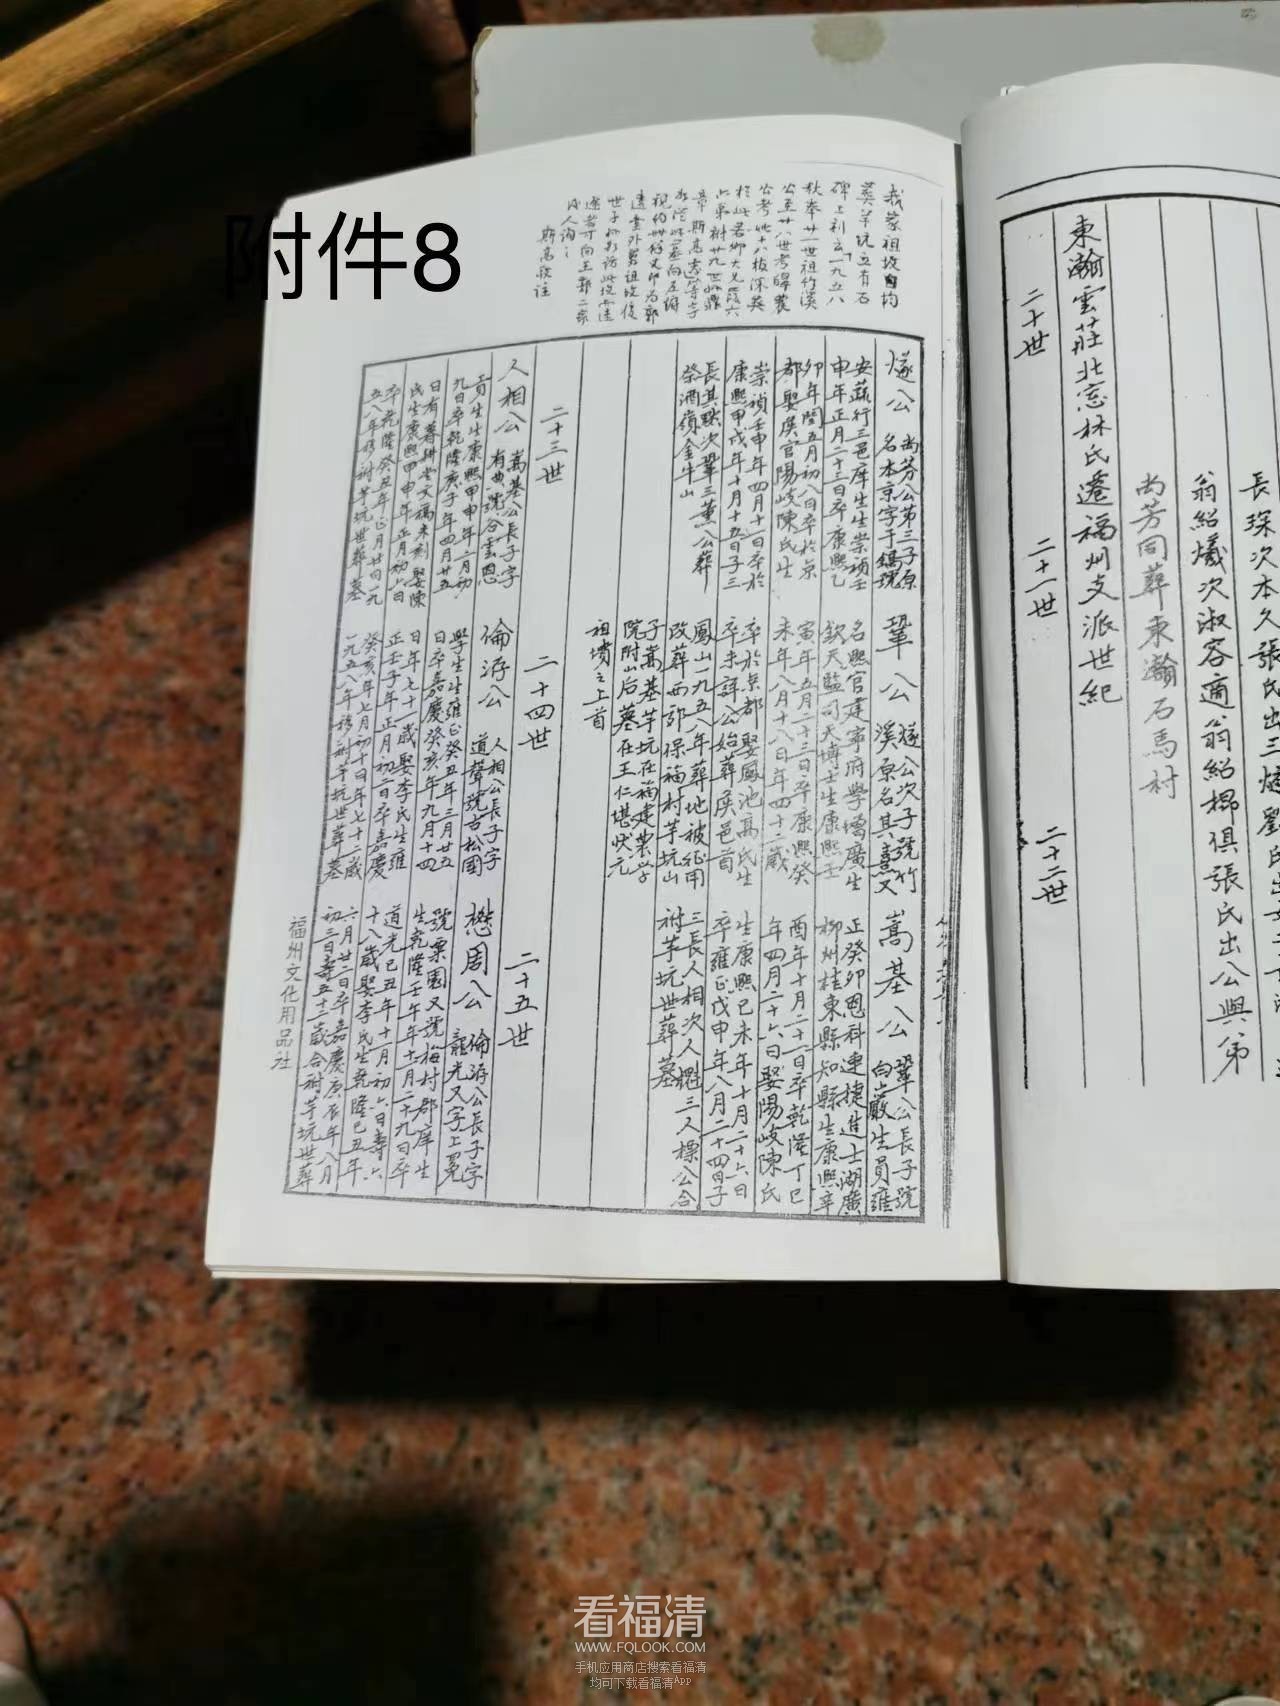 附件8
長琛次本久張氏出三燧劉氏出
翁紹爔次淑容適翁紹楊俱張氏出公與弟
尚芳同葬東瀚石馬村
東瀚雲莊北窓林氏遷福州支派世紀
二十世
二十一世
二十二世
我蒙祖坟自均
葬羊坑立有石
碑上刻云「一九五八
秋奉廿一世祖竹溪
公至廿八世考暐農
燧公
尚芳公第三子原
名本京字于鎬號
安蔬行三邑庠生生崇禎壬
申年正月二十三日卒康熙乙
卯年閏五月初八日卒於京
都娶侯官陽岐陳氏生
崇禎壬申年四月十一日卒於
康熙甲戌年十月十五日子三
長其默次鞏三薰公葬
祭酒嶺金牛山
鞏公
燧公次子號竹
溪原名其燾又
名熙官建寧府學增廣生
欽天監司天博士生康熙壬
寅年五月二十三日卒康熙癸
未年八月十八日年四十二歲
卒於京都娶鳳池高氏生
卒未詳公始葬侯邑首
鳳山一九五八年葬地被征用
改葬西郊保福村芋坑山
子嵩基芋坑在福建業學
院附山后墓在王仁堪狀元
祖墳之上首
嵩基公
鞏公長子號
白巖生員雍
正癸卯恩科連捷進士湖廣
柳州桂東縣知縣生康熙辛
酉年十月二十二日卒乾隆丁巳
年四月二十六日娶陽岐陳氏
生康熙己未年十月二十六日
卒雍正戊申年八月二十四日子
三長人相次人魁三人標公合
祔芋坑世葬墓
二十三世
二十四世
二十五世
人相公
嵩基公長子字
有典號谷雲恩
貢生生康熙甲申年二月初
九日卒乾隆庚子年四月廿五
日有暮耕堂文稿未刻娶陳
氏生康熙甲申年正月初六日
卒乾隆癸丑年正月廿四日一九
五八年移祔芋坑世葬墓
倫濟公
人相公長子字
道聲號古松國
學生生雍正癸丑年三月廿五
日卒嘉慶癸亥年九月十四
日年七十一歲娶李氏生雍
正壬子年正月初二日卒嘉慶
癸亥年七月初十四年七十二歲
一九五八年移祔芋坑世葬墓
懋周公
倫濟公長子字
龍光又字上冕
號栗園又號梅村郡庠生
生乾隆壬午年十月二十九日卒
道光己丑年十月初六日壽六
十八歲娶李氏生乾隆己丑年
六月廿二日卒嘉慶庚辰年八月
初三日壽五十二歲合祔芋坑世葬
福州文化用品社
看福清
WWW.FQLOOK.COM
手机应用商店搜索看福清
均可下载看福清App